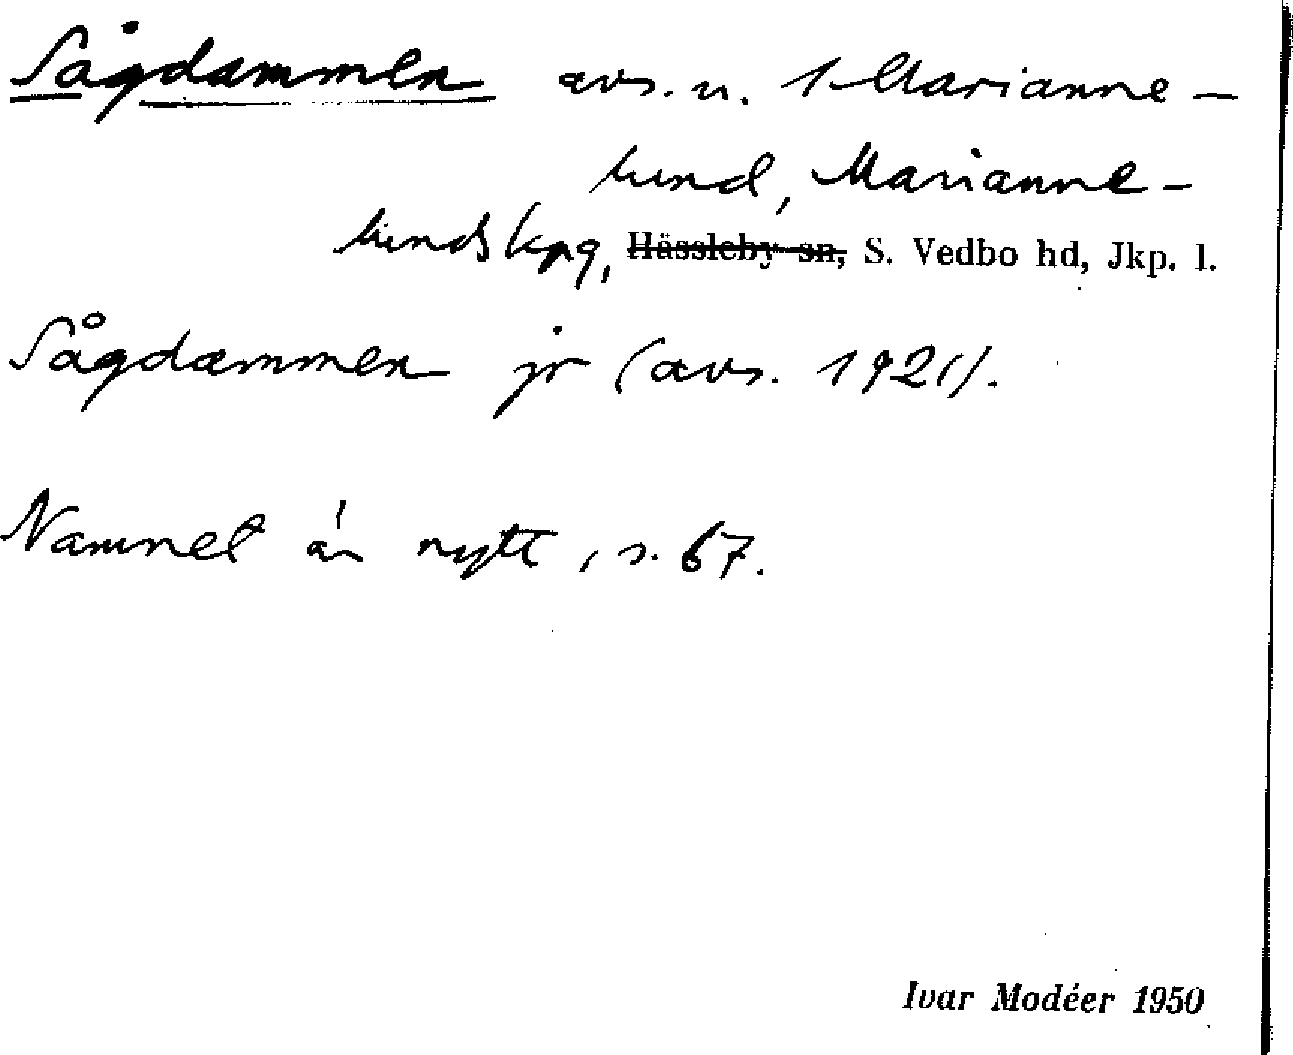 Sågdammen avs. u. 1 Marianne-
lund, Marianne-
lunds kpg, Hässleby sn, S. Vedbo hd, Jkp. l.
Sågdammen jr (avs. 1921).
Namnet är nytt, s. 67.
Ivar Modéer 1950